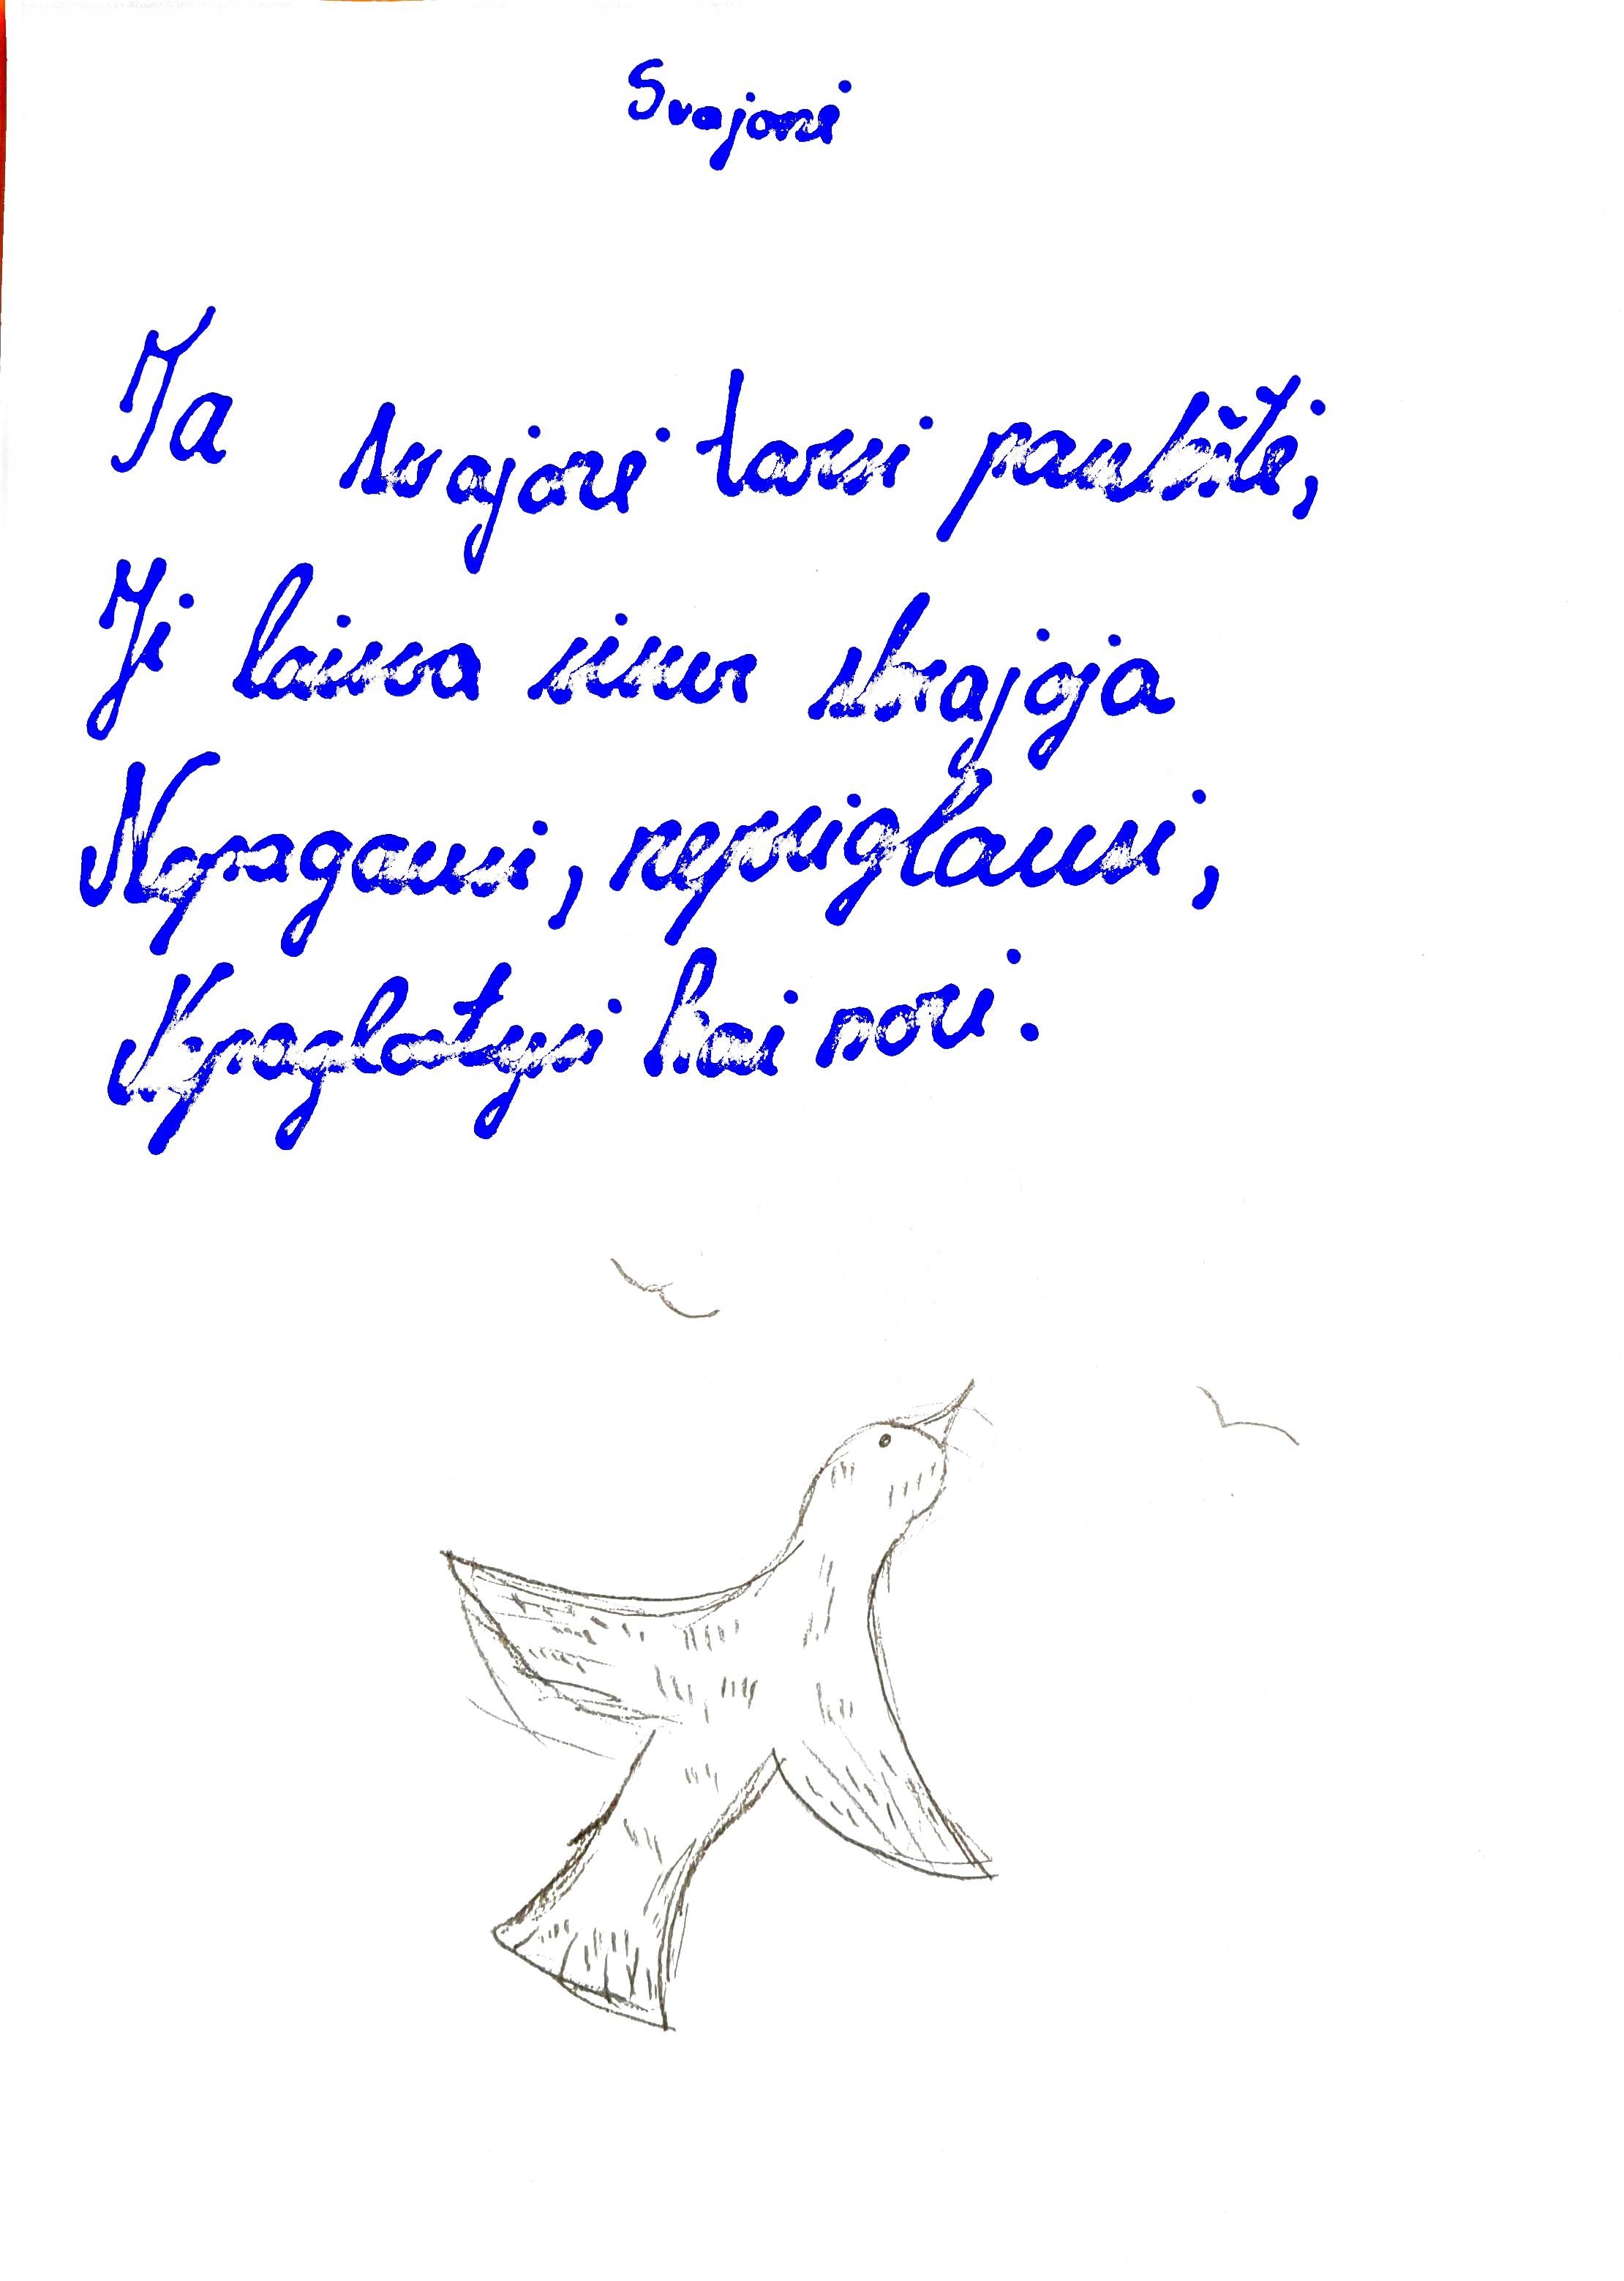 Svajonė
Ta svajonė tarsi paukštė,
Ji laisva sinur skrajoja
Nepagausi, nepriglausi,
Nepaglostysi kai nori.